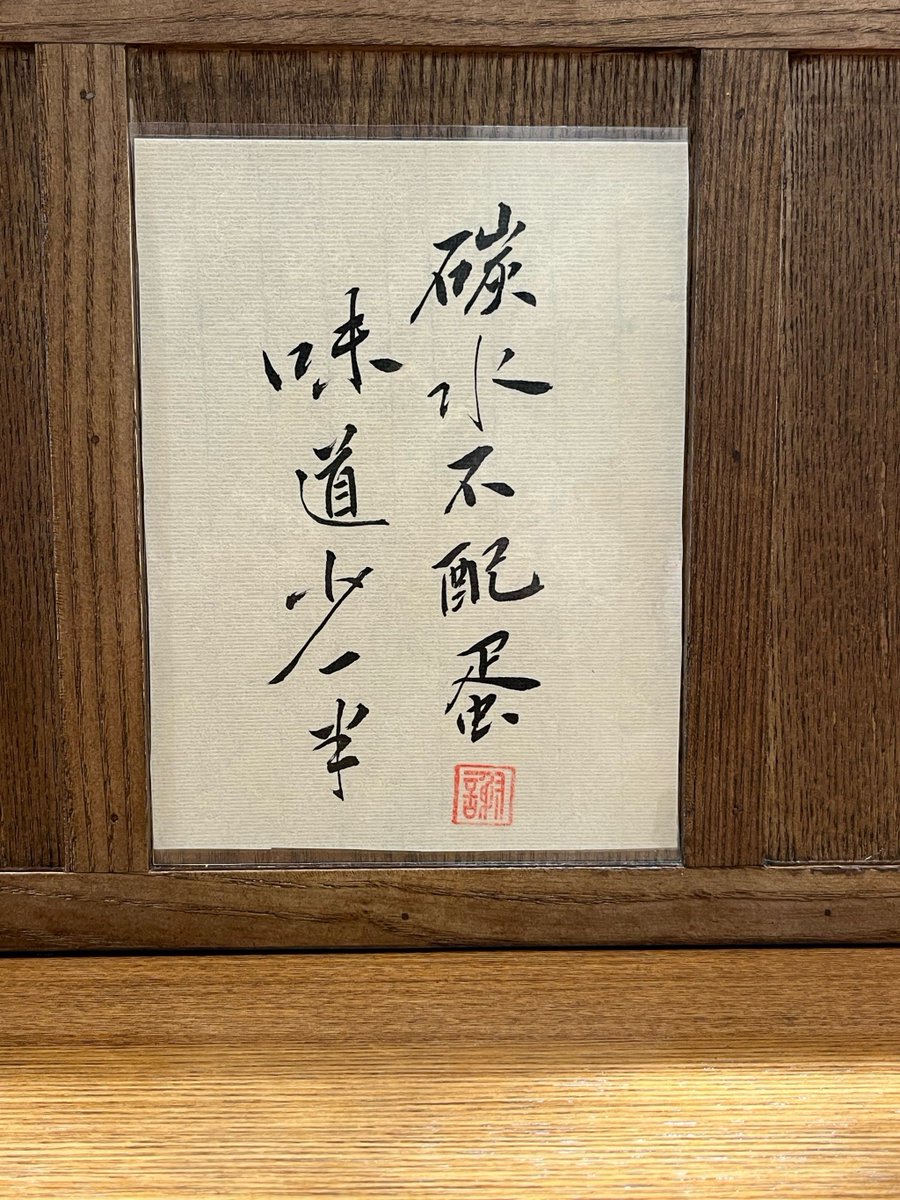 碳水不配蛋
味道少一半
謝